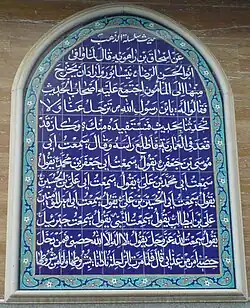 حدیث سلسلة الذهب
عن اسحاق بن راهويه قال لما وافى
ابو الحسن الرضا بنيسابور واراد ان يخرج
منها الى المأمون اجتمع عليه اصحاب الحديث
فقالوا له يابن رسول الله ترحل عنا ولا
تحدثنا بحديث فنستفيده منك وكان قد
قعد في العمارية فاطلع رأسه وقال سمعت ابي
موسى بن جعفر يقول سمعت ابي جعفر بن محمد يقول
سمعت ابي محمد بن علي يقول سمعت ابي علي بن الحسين
يقول سمعت ابي الحسين بن علي يقول سمعت ابي امير المؤمنين
علي بن ابيطالب يقول سمعت النبي يقول سمعت جبرئيل
يقول سمعت الله عز وجل يقول لا اله الا الله حصني فمن دخل
حصني امن من عذابي قال فلما مرت الراحلة نادانا بشروطها وانا من شروطها